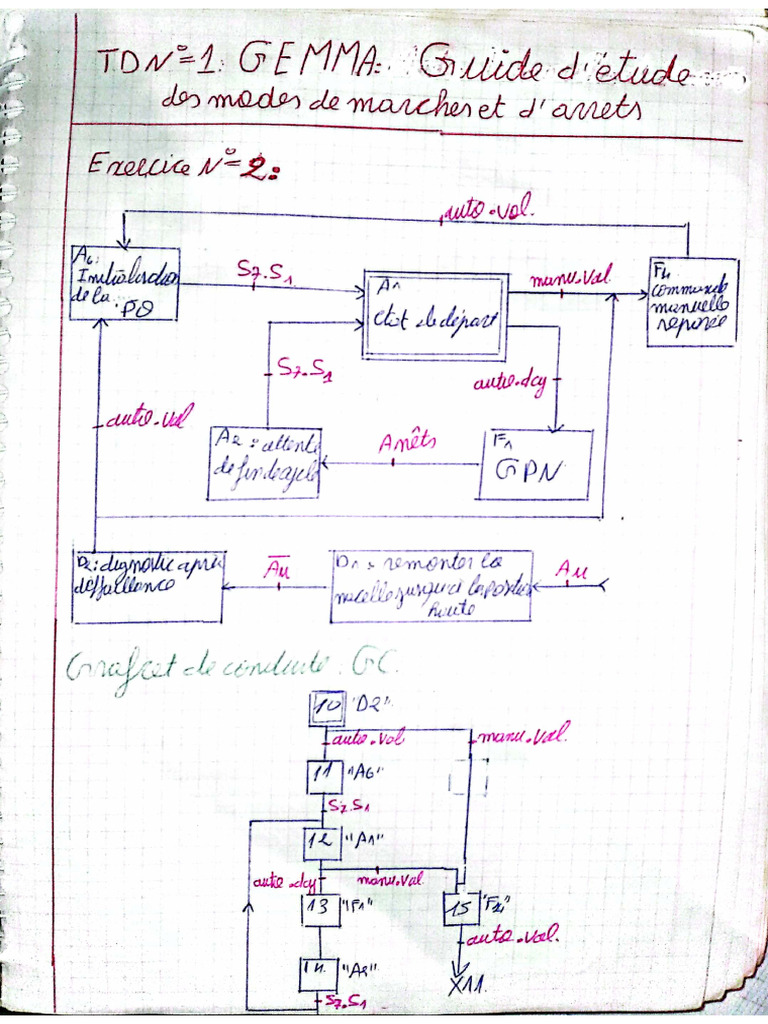 TD N°=1. GEMMA: Guide d'étude
des modes de marches et d'arrets
Exercice N°=2:
auto.val.
A6:
Initialisation
de la
PO
S7.S1
A1
Etat de départ
manu.val.
F4
commande
manuelle
reperée
S7.S1
auto.dcy
auto.val
A2: attente
de fin de cycle
Arrêts
F1
GPN
D2: diagnostic après
deffaillance
A̅u̅
D1: remonter la
nacelle jusqu'à la position
haute
Au
Grafcet de conduite: GC.
10 "D2"
auto.val
manu.val.
11 "A6"
S7.S1
12 "A1"
auto.dcy
manu.val
13 "F1"
15 "F4"
auto.val.
14 "A2"
X11.
S7.S1